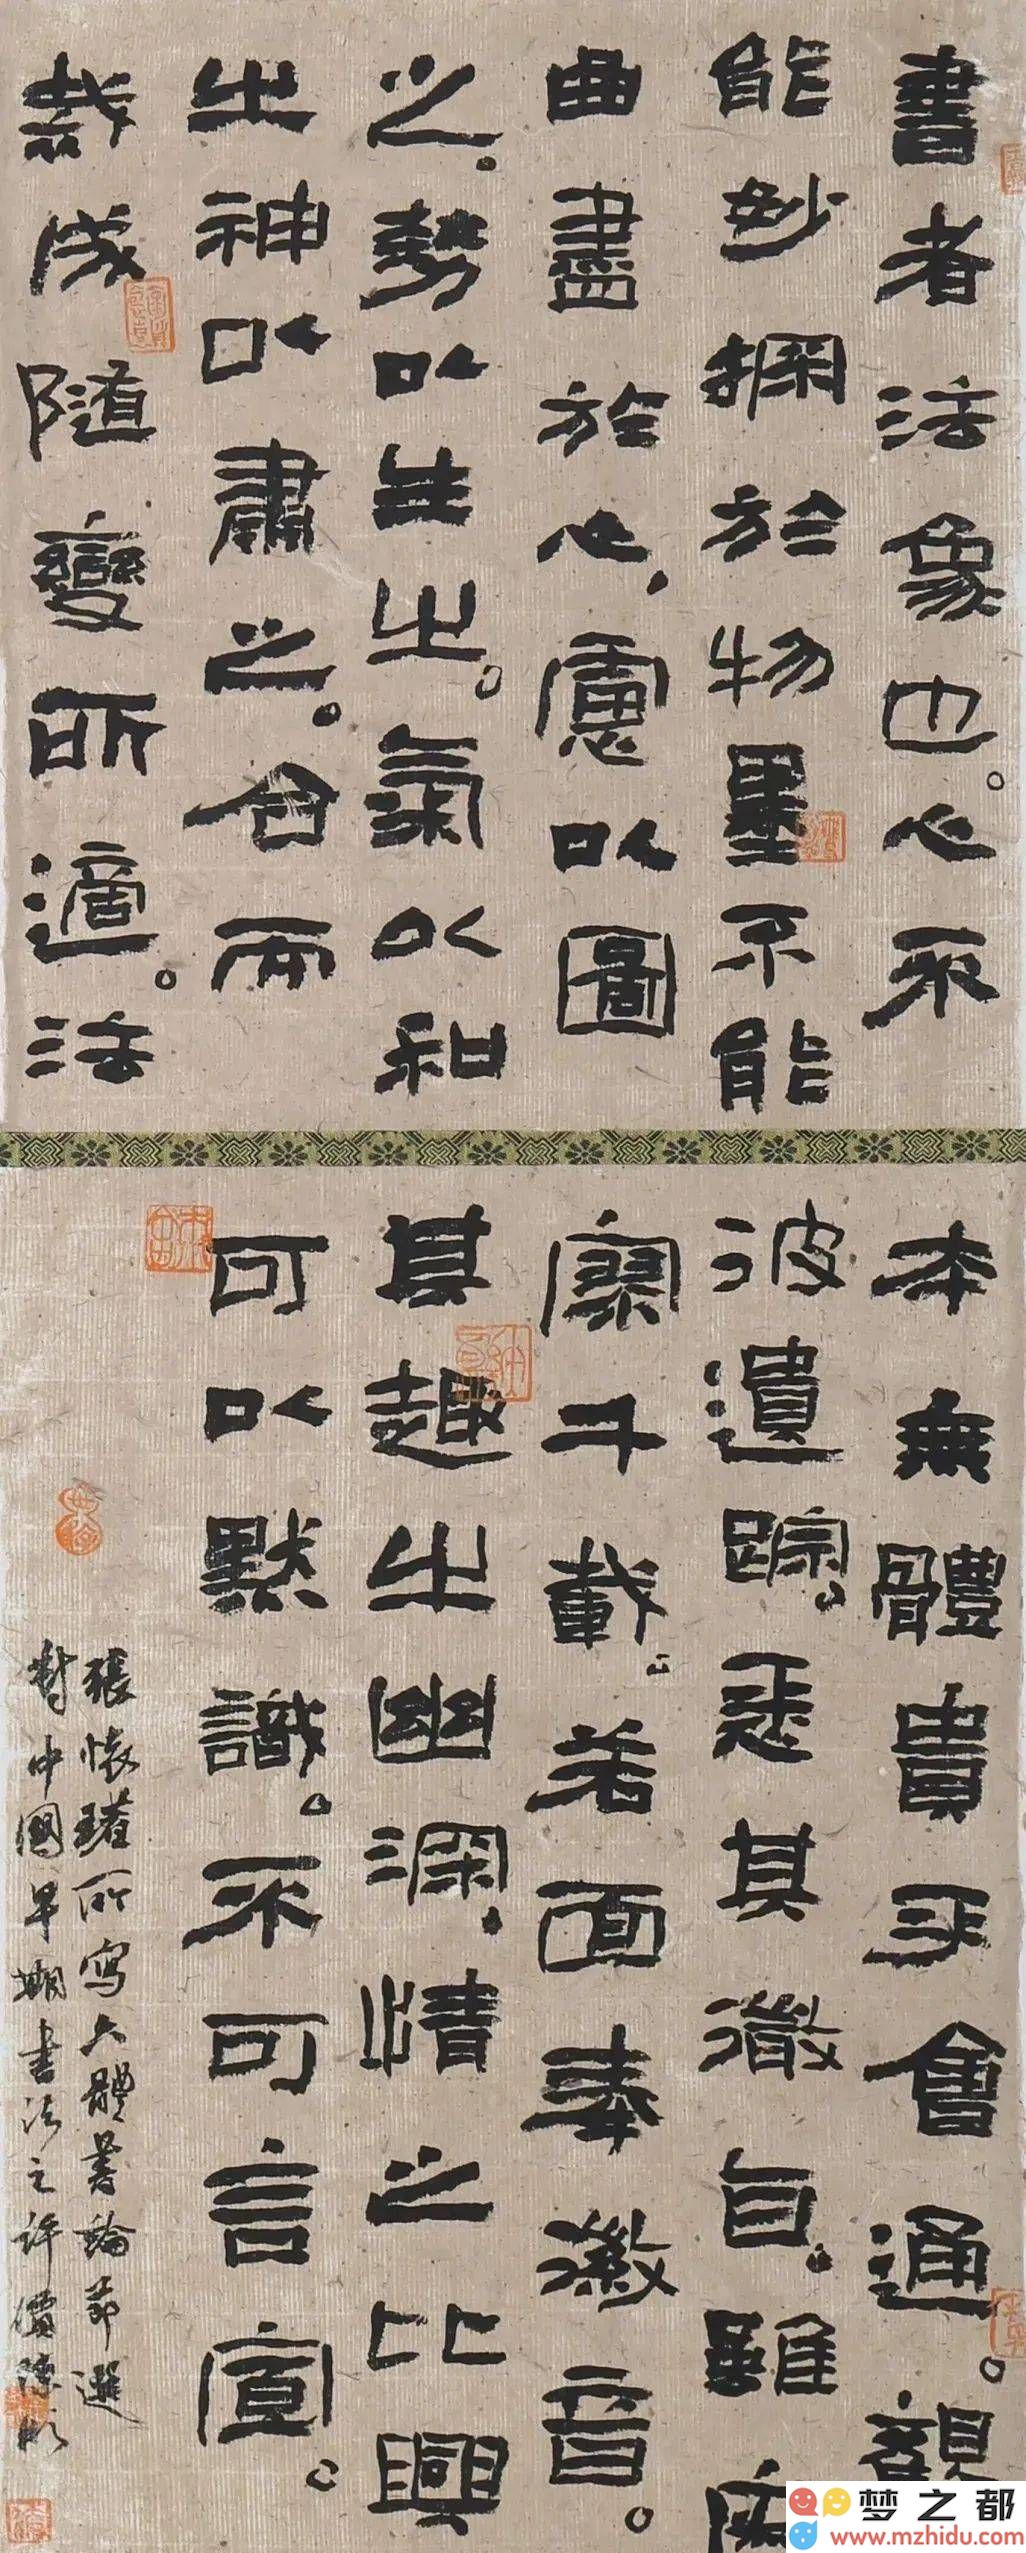 書者法象也。心不
能妙探於物墨不能
曲盡於心，慮以圖
之，勢以生之。氣以和
之神以肅之。合而
裁成隨變所適。法
本無體貴乎會通。觀
彼遺踪。悉其微旨。雖寂
寥千載。若面奉徽音。
其趣之幽深，情之比興
可以默識。不可言宣。
張懷瓘所寫六體書論節選
對中國早期書法之評價
梦之都
www.mzhidu.com